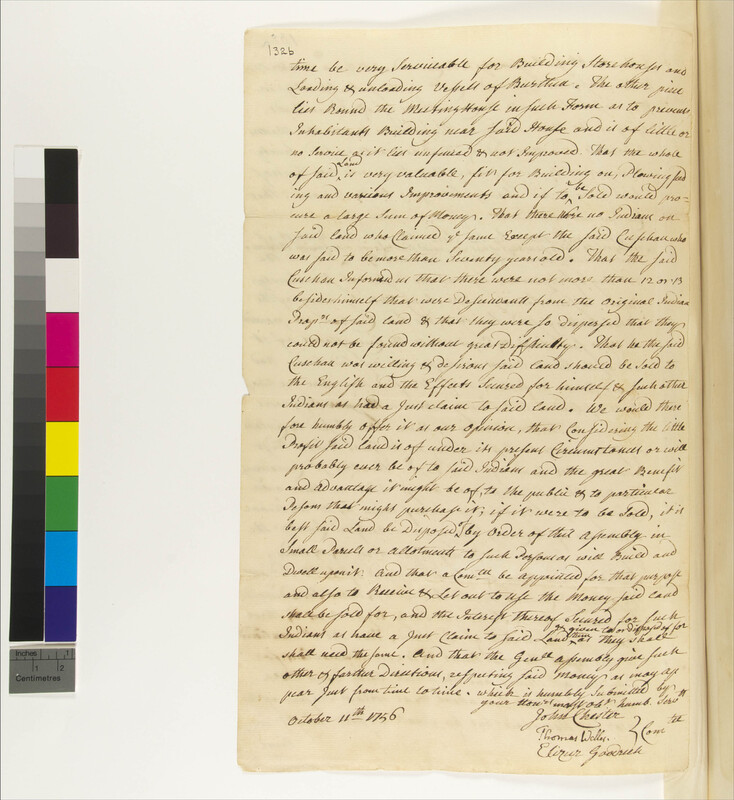 132b
time be very Serviceable for Building Storehouses and
Loading & unloading Vessels of Burthen. The other piece
lies Round the Meeting House in such Form as to prevent
Inhabitants Building near said House and is of little or
no Service as it lies unfenced & not Improved. That the whole
of said Land is very valuable, fit for Building on, Plowing feed
ing and various Improvements and if to be Sold would pro-
cure a large Sum of Money. That there were no Indians on
said land who Claimed ye same Except the said Cuschau who
was said to be more than Seventy years old. That the said
Cuschau Informed us that there were not more than 12 or 13
besides himself that were Descendants from the Original Indian
Proprs of said land & that they were so dispersed that they
could not be found without great Difficulty. That he the said
Cuschau was willing & desirous said land should be Sold to
the English and the Effects Secured for himself & such other
Indians as had a Just claim to said land. We would there
fore humbly offer it as our opinion, that Considering the little
Profit said land is of under its present Circumstances or will
probably ever be of to said Indians and the great Benefit
and advantage it might be of, to the public & to particular
Persons that might purchase it; if it were to be Sold, it is
best said Land be Disposd by Order of this Assembly in
Small Parcels or allotments to such Persons as will Build and
Dwell upon it. And that a Comtee be appointed for that purpose
and also to Receive & Let out to use the Money said land
shall be sold for, and the Interest thereof Secured for such
Indians as have a Just Claim to said Land & given to or disposed of for them as they shall
shall need the same. And that the Genll Assembly give such
other & farther Directions, respecting said Money as may ap
pear Just from time to time. which is humbly Submitted by
your Honrs most Obt humb. Servts
October 11th 1756
John Chester
Thomas Welles
Elizur Goodrich
Comtee